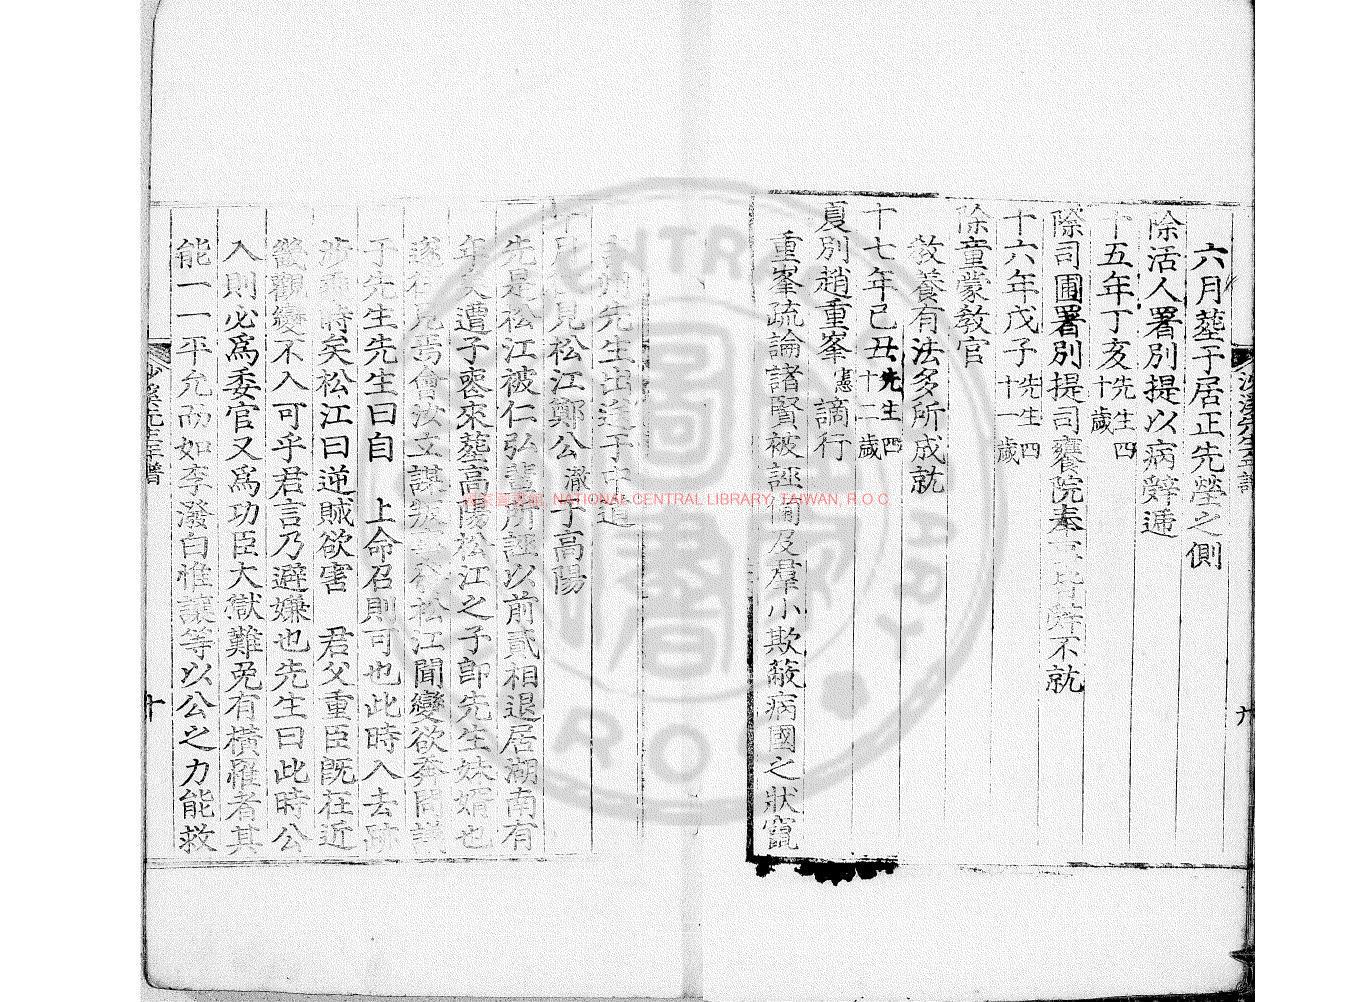 六月葬于居正先塋之側
除活人署別提以病辭遞
十五年丁亥先生四十歲
除司圃署別提司饔院奉事皆辭不就
十六年戊子先生四十一歲
除童蒙敎官
敎養有法多所成就
十七年己丑先生四十二歲
夏別趙重峯憲謫行
重峯疏論諸賢被誣備及羣小欺蔽病國之狀竄
州先生出送于中道
十月見松江鄭公澈于高陽
先是松江被仁弘輩所誣以前貳相退居湖南有
年矣遭子喪來葬高陽松江之子卽先生妹婿也
遂往見焉會汝立謀叛松江聞變欲奔問議
于先生先生曰自 上命召則可也此時入去跡
涉時矣松江曰逆賊欲害 君父重臣旣在近
畿觀變不入可乎君言乃避嫌也先生曰此時公
入則必爲委官又爲功臣大獄難免有橫罹者其
能一一平允而如李潑白惟讓等以公之力能救
沙溪先生年譜
十
國家圖書館, NATIONAL CENTRAL LIBRARY, TAIWAN, R.O.C